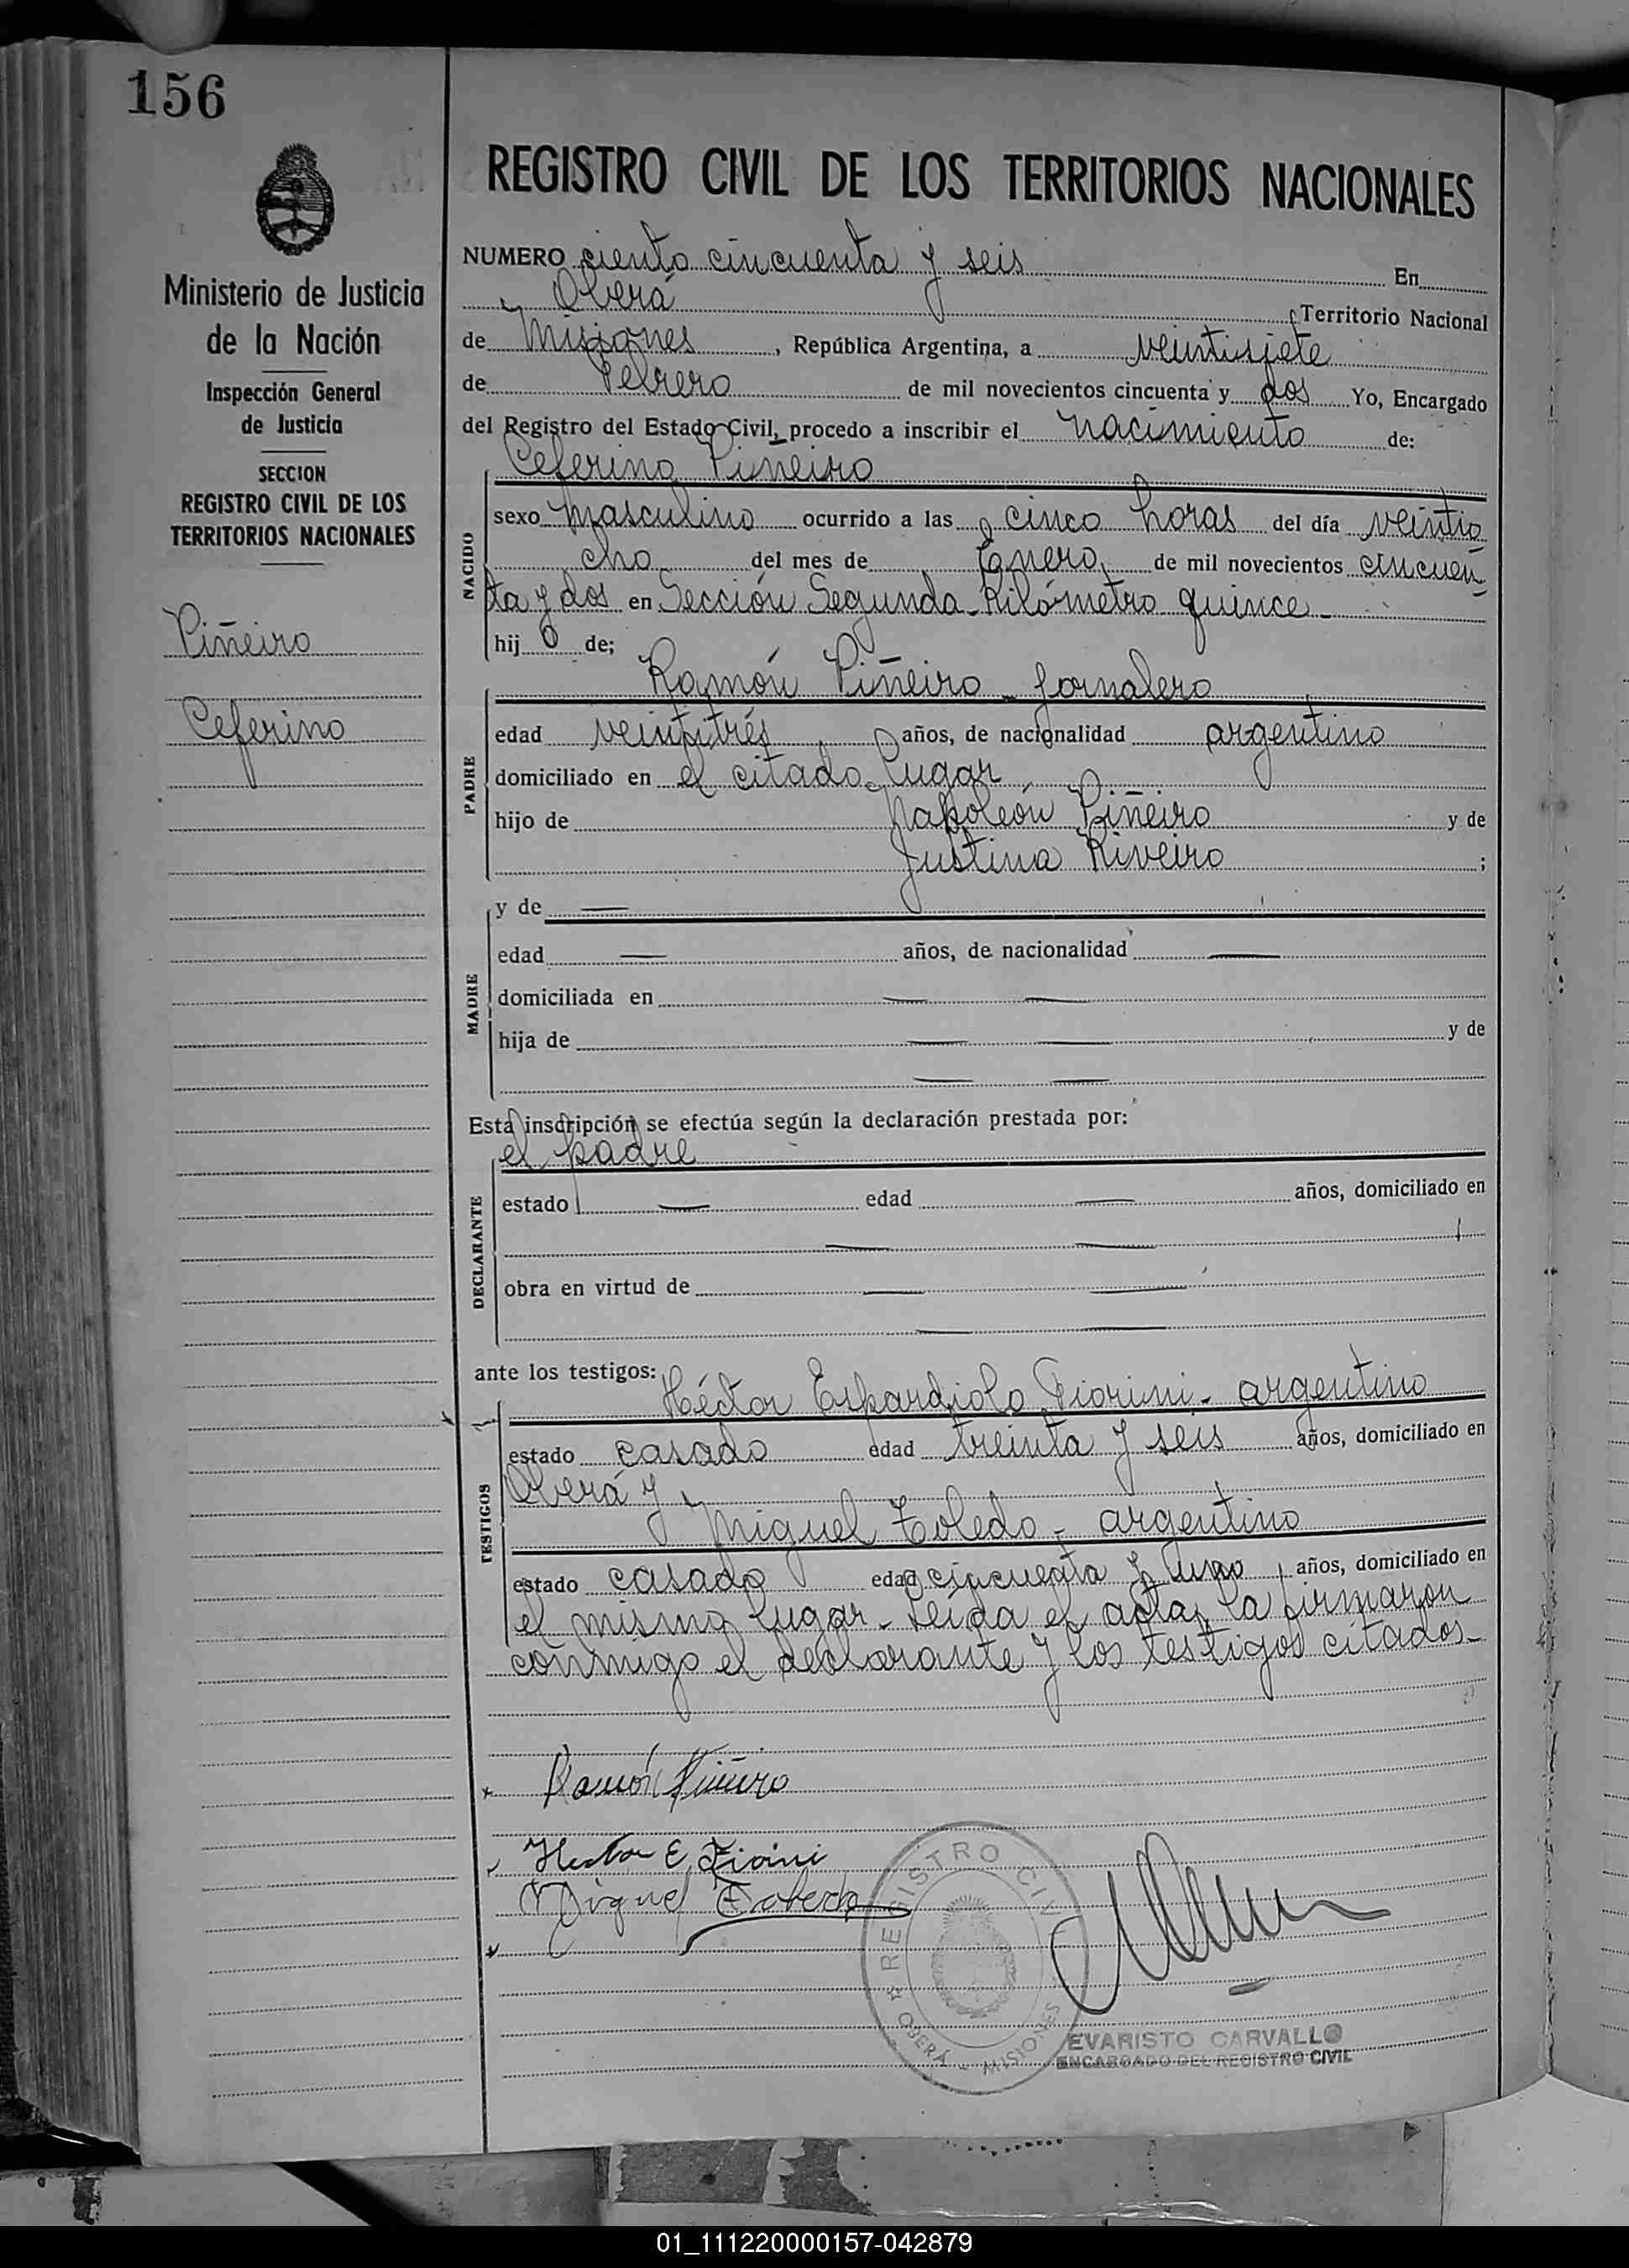 156
Ministerio de Justicia
de la Nación
Inspección General
de Justicia
SECCION
REGISTRO CIVIL DE LOS
TERRITORIOS NACIONALES
Piñeiro
Ceferino
REGISTRO CIVIL DE LOS TERRITORIOS NACIONALES
NUMERO ciento cincuenta y seis En
Oberá Territorio Nacional
de Misiones, República Argentina, a veintisiete
de Febrero de mil novecientos cincuenta y dos Yo, Encargado
del Registro del Estado Civil, procedo a inscribir el nacimiento de:
Ceferino Piñeiro
NACIDO
sexo masculino ocurrido a las cinco horas del día veintio
cho del mes de Enero de mil novecientos cincuen
ta y dos en Sección Segunda - Kilómetro quince -
hijo de;
Ramón Piñeiro - Jornalero
PADRE
edad veintitrés años, de nacionalidad argentino
domiciliado en el citado lugar
hijo de Napoleón Piñeiro y de
Justina Riveiro ;
MADRE
y de —
edad — años, de nacionalidad —
domiciliada en — —
hija de — — y de
— —
Esta inscripción se efectúa según la declaración prestada por:
el padre
DECLARANTE
estado — edad — años, domiciliado en
— —
obra en virtud de — —
— —
ante los testigos: Héctor Espardiolo Fiorini - argentino
TESTIGOS
estado casado edad treinta y seis años, domiciliado en
Oberá y
Miguel Toledo - argentino
estado casado edad cincuenta y uno años, domiciliado en
el mismo lugar - Leída el acta, la firmaron
conmigo el declarante y los testigos citados -
Ramón Piñeiro
Hector E. Fiorini
Miguel Toledo
REGISTRO CIVIL
OBERÁ - MISIONES
EVARISTO CARVALLO
ENCARGADO DEL REGISTRO CIVIL
01_111220000157-042879